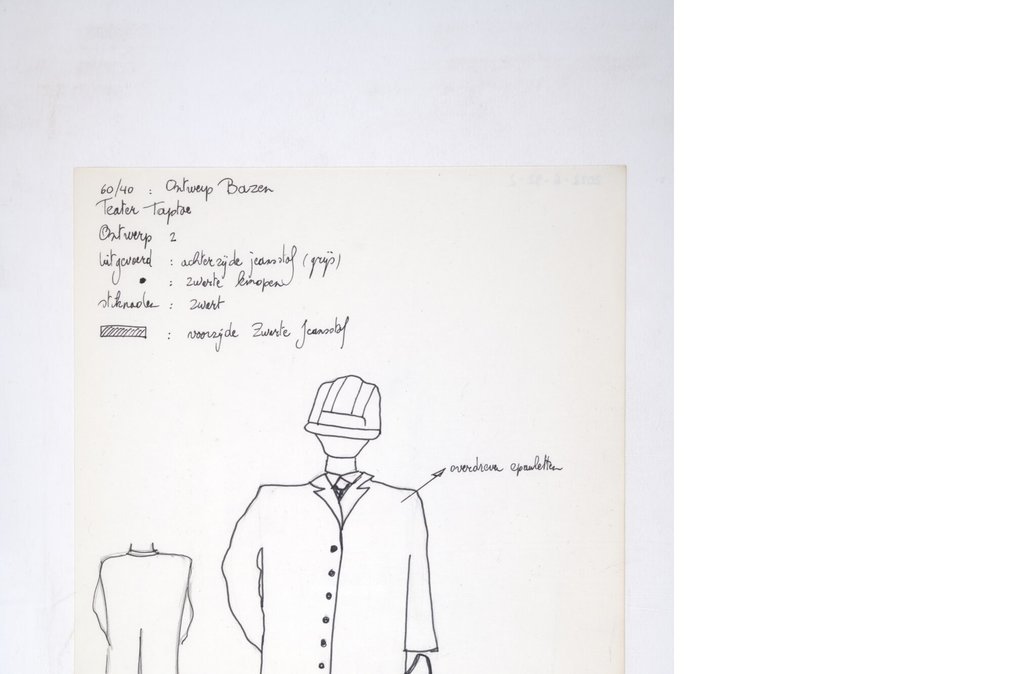 60/40 : Ontwerp Bazen
Teater Taptoe
Ontwerp 2
Uitgevoerd : achterzijde jeansstof (grijs)
• : zwarte knopen
stiknaden : zwart
: voorzijde Zwarte Jeansstof
overdreven epauletten